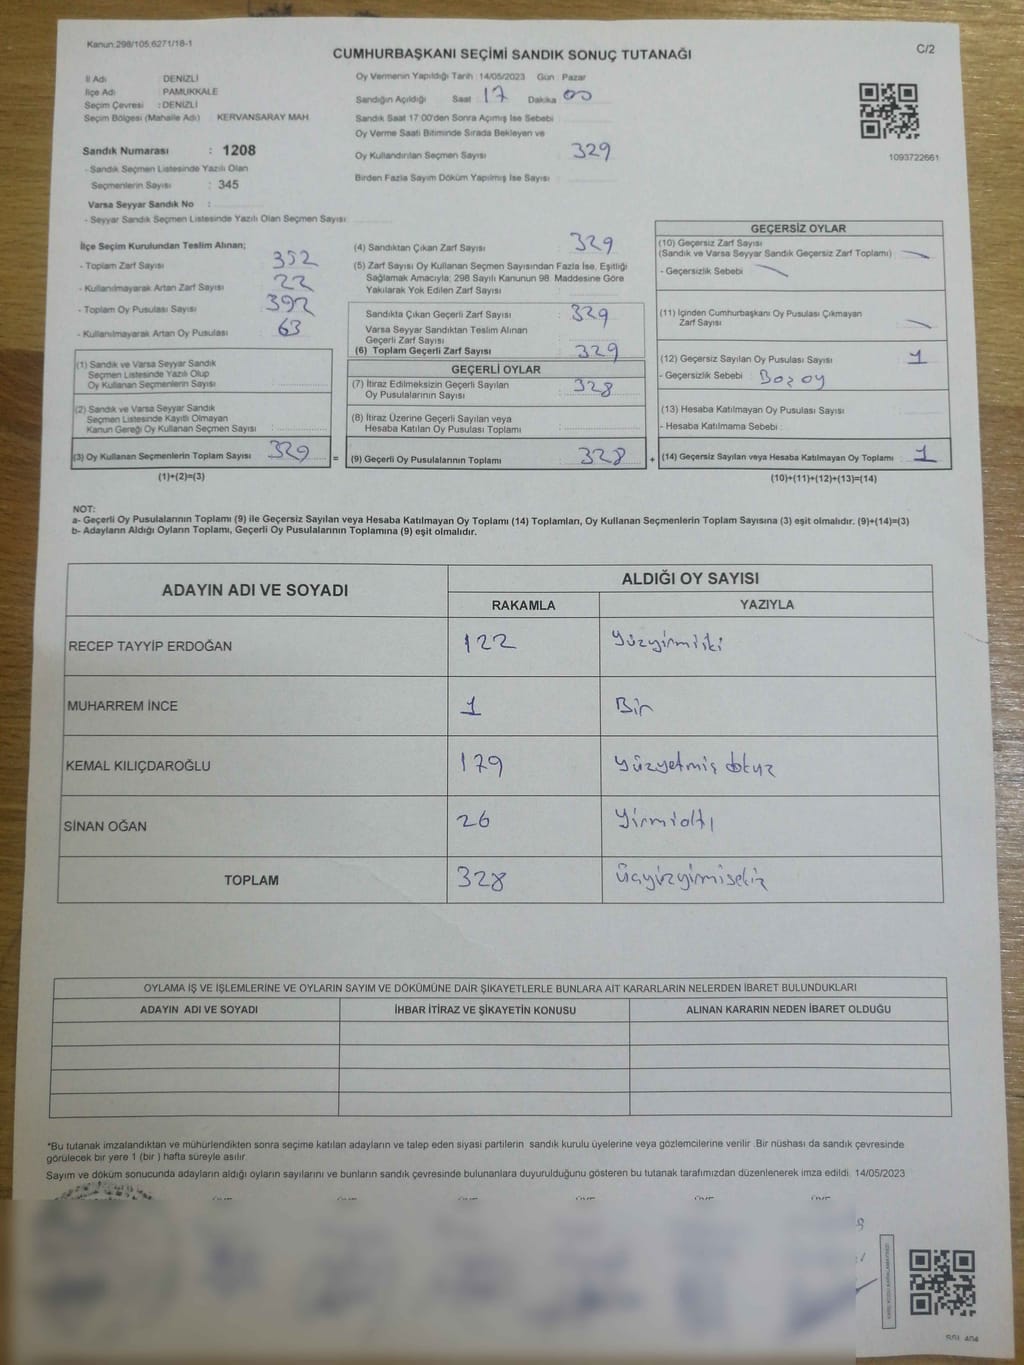 Kanun:298/105,6271/18-1
CUMHURBAŞKANI SEÇİMİ SANDIK SONUÇ TUTANAĞI
C/2
İl Adı DENİZLİ
İlçe Adı PAMUKKALE
Seçim Çevresi : DENİZLİ
Seçim Bölgesi (Mahalle Adı) KERVANSARAY MAH.
Oy Vermenin Yapıldığı Tarih : 14/05/2023 Gün : Pazar
Sandığın Açıldığı Saat 17 Dakika 00
Sandık Saat 17:00'den Sonra Açımış İse Sebebi
Oy Verme Saati Bitiminde Sırada Bekleyen ve
Oy Kullandırılan Seçmen Sayısı 329
Birden Fazla Sayım Döküm Yapılmış İse Sayısı
1093722661
Sandık Numarası : 1208
- Sandık Seçmen Listesinde Yazılı Olan
Seçmenlerin Sayısı : 345
Varsa Seyyar Sandık No :
- Seyyar Sandık Seçmen Listesinde Yazılı Olan Seçmen Sayısı
İlçe Seçim Kurulundan Teslim Alınan;
- Toplam Zarf Sayısı 352
- Kullanılmayarak Artan Zarf Sayısı 22
- Toplam Oy Pusulası Sayısı 392
- Kullanılmayarak Artan Oy Pusulası 63
(1) Sandık ve Varsa Seyyar Sandık
Seçmen Listesinde Yazılı Olup
Oy Kullanan Seçmenlerin Sayısı
(2) Sandık ve Varsa Seyyar Sandık
Seçmen Listesinde Kayıtlı Olmayan
Kanun Gereği Oy Kullanan Seçmen Sayısı :
(3) Oy Kullanan Seçmenlerin Toplam Sayısı 329
(1)+(2)=(3)
(4) Sandıktan Çıkan Zarf Sayısı 329
(5) Zarf Sayısı Oy Kullanan Seçmen Sayısından Fazla İse, Eşitliği
Sağlamak Amacıyla; 298 Sayılı Kanunun 98. Maddesine Göre
Yakılarak Yok Edilen Zarf Sayısı
Sandıkta Çıkan Geçerli Zarf Sayısı : 329
Varsa Seyyar Sandıktan Teslim Alınan
Geçerli Zarf Sayısı
(6) Toplam Geçerli Zarf Sayısı 329
GEÇERLİ OYLAR
(7) İtiraz Edilmeksizin Geçerli Sayılan
Oy Pusulalarının Sayısı 328
(8) İtiraz Üzerine Geçerli Sayılan veya
Hesaba Katılan Oy Pusulası Toplamı
= (9) Geçerli Oy Pusulalarının Toplamı 328
GEÇERSİZ OYLAR
(10) Geçersiz Zarf Sayısı
(Sandık ve Varsa Seyyar Sandık Geçersiz Zarf Toplamı)
- Geçersizlik Sebebi
(11) İçinden Cumhurbaşkanı Oy Pusulası Çıkmayan
Zarf Sayısı
(12) Geçersiz Sayılan Oy Pusulası Sayısı 1
- Geçersizlik Sebebi : Boş oy
(13) Hesaba Katılmayan Oy Pusulası Sayısı
- Hesaba Katılmama Sebebi :
+ (14) Geçersiz Sayılan veya Hesaba Katılmayan Oy Toplamı 1
(10)+(11)+(12)+(13)=(14)
NOT:
a- Geçerli Oy Pusulalarının Toplamı (9) ile Geçersiz Sayılan veya Hesaba Katılmayan Oy Toplamı (14) Toplamları, Oy Kullanan Seçmenlerin Toplam Sayısına (3) eşit olmalıdır. (9)+(14)=(3)
b- Adayların Aldığı Oyların Toplamı, Geçerli Oy Pusulalarının Toplamına (9) eşit olmalıdır.
ADAYIN ADI VE SOYADI ALDIĞI OY SAYISI
RAKAMLA YAZIYLA
RECEP TAYYİP ERDOĞAN 122 Yüzyirmiiki
MUHARREM İNCE 1 Bir
KEMAL KILIÇDAROĞLU 179 Yüzyetmiş dokuz
SİNAN OĞAN 26 Yirmialtı
TOPLAM 328 Üçyüzyirmisekiz
OYLAMA İŞ VE İŞLEMLERİNE VE OYLARIN SAYIM VE DÖKÜMÜNE DAİR ŞİKAYETLERLE BUNLARA AİT KARARLARIN NELERDEN İBARET BULUNDUKLARI
ADAYIN ADI VE SOYADI İHBAR İTİRAZ VE ŞİKAYETİN KONUSU ALINAN KARARIN NEDEN İBARET OLDUĞU
*Bu tutanak imzalandıktan ve mühürlendikten sonra seçime katılan adayların ve talep eden siyasi partilerin sandık kurulu üyelerine veya gözlemcilerine verilir. Bir nüshası da sandık çevresinde
görülecek bir yere 1 (bir ) hafta süreyle asılır.
Sayım ve döküm sonucunda adayların aldığı oyların sayılarını ve bunların sandık çevresinde bulunanlara duyurulduğunu gösteren bu tutanak tarafımızdan düzenlenerek imza edildi. 14/05/2023